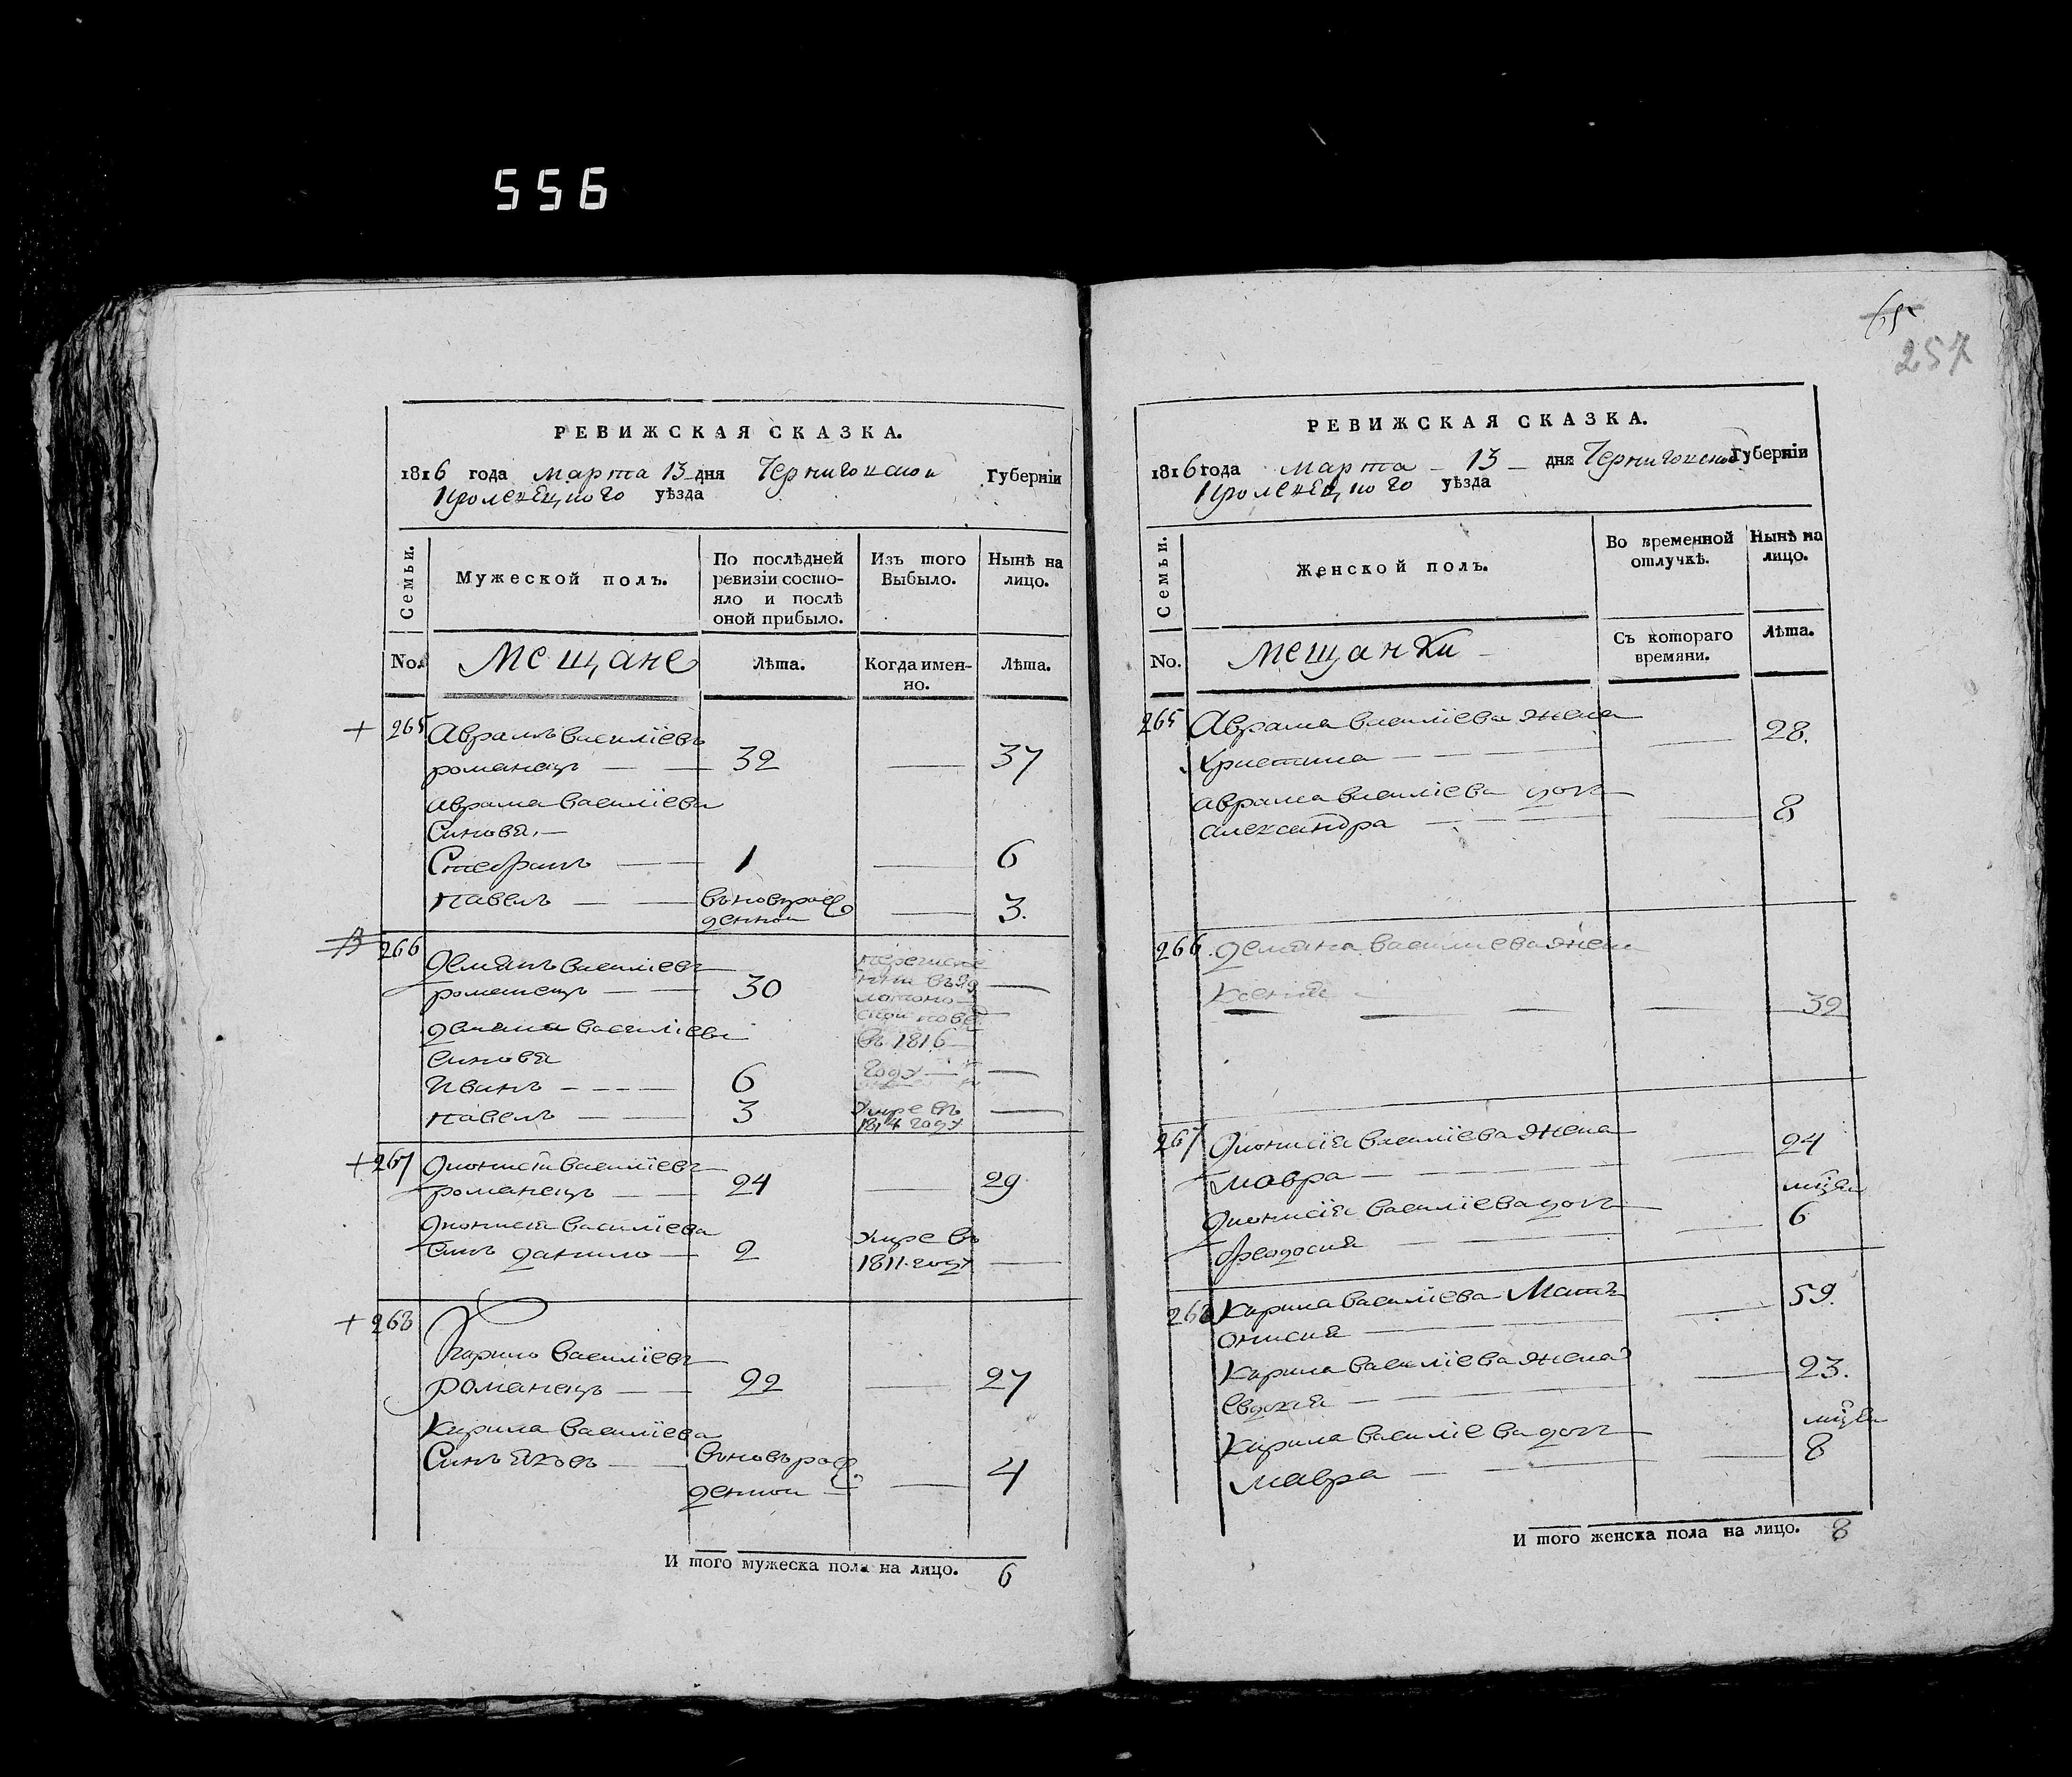 556
РЕВИЖСКАЯ СКАЗКА.
1816 года марта 13 дня Черниговской Губерніи
Кролевецкого уѣзда
Семьи.
Мужеской полъ.
По послѣдней
ревизіи состо-
яло и послѣ
оной прибыло.
Изъ того
Выбыло.
Нынѣ на
лицо.
No.
Мещане
Лѣта.
Когда имен-
но.
Лѣта.
265 Аврамъ василіевъ
романецъ 32 37
аврама василіева
Синовя
Стефанъ 1 6
павелъ въновърож
денной 3.
266 Демянъ василіевъ
романецъ 30
демяна василіева
синовя
Иванъ 6
въ 1816
году
павелъ 3 умре въ
1814 году
267 Дионисій василіевъ
романецъ 24 29
Дионисія василіева
синъ данило 2 умре въ
1811 году
268
Кирило василіевъ
романецъ 22 27
Кирила василіева
Синъ яковъ въновърож
денной 4
И того мужеска пола на лицо. 6
65
257
РЕВИЖСКАЯ СКАЗКА.
1816 года марта 13 дня Черниговской Губерніи
Кролевецкого уѣзда
Семьи.
Женской полъ.
Во временной
отлучкѣ.
Нынѣ на
лицо.
No.
мещанки
Съ котораго
времяни.
Лѣта.
265 Аврама василіева жена
Христина 28.
аврама василіева дочь
александра 8
266 демяна василиева жена
Ксения 32
267 Дионисія василіева жена
мавра 24
Дионисія василіева дочь
феодосия 6
268 Кирила василіева Мать
онисия 59.
Кирила василіева жена
Евдокия 23.
Кирила василіева дочь
мавра 8
И того женска пола на лицо. 8